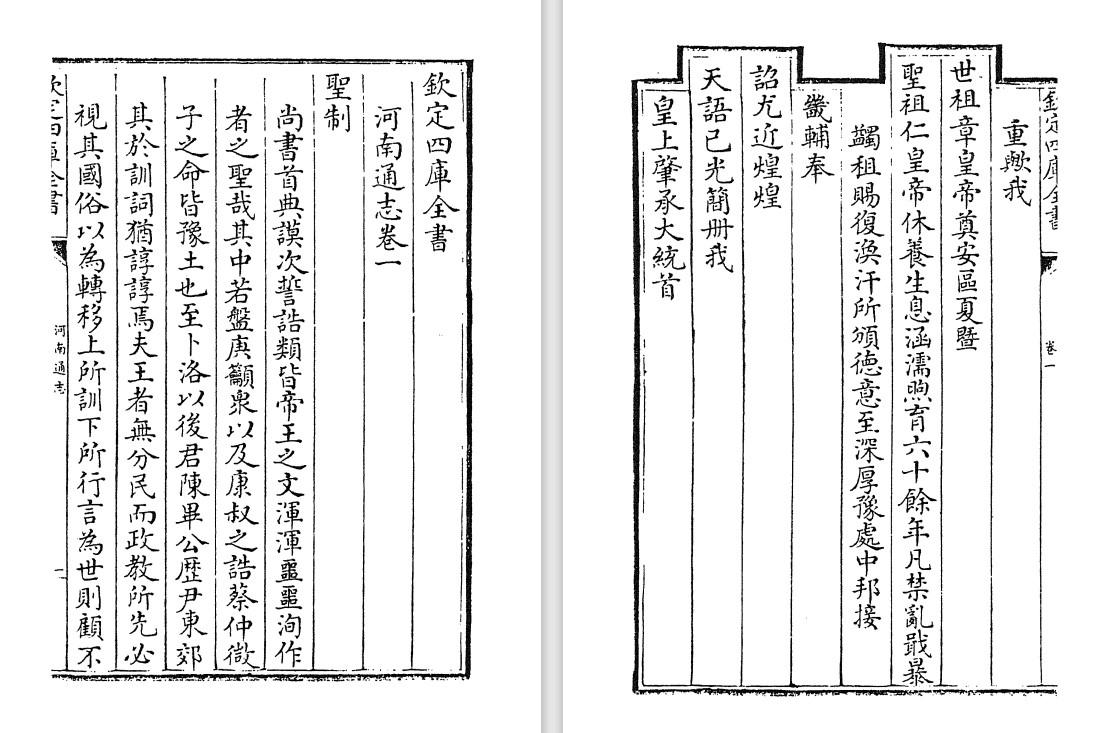 欽定四庫全書
河南通志卷一
聖制
尚書首典謨次誓誥類皆帝王之文渾渾噩噩洵作
者之聖哉其中若盤庚籲衆以及康叔之誥蔡仲微
子之命皆豫土也至卜洛以後君陳畢公歴尹東郊
其於訓詞猶諄諄焉夫王者無分民而政教所先必
視其國俗以為轉移上所訓下所行言為世則顧不
欽定四庫全書
河南通志
欽定四庫全書
卷一
重歟我
世祖章皇帝奠安區夏暨
聖祖仁皇帝休養生息涵濡煦育六十餘年凡禁亂戢暴
蠲租賜復渙汗所頒德意至深厚豫處中邦接
畿輔奉
詔尤近煌煌
天語已光簡册我
皇上肇承大統首